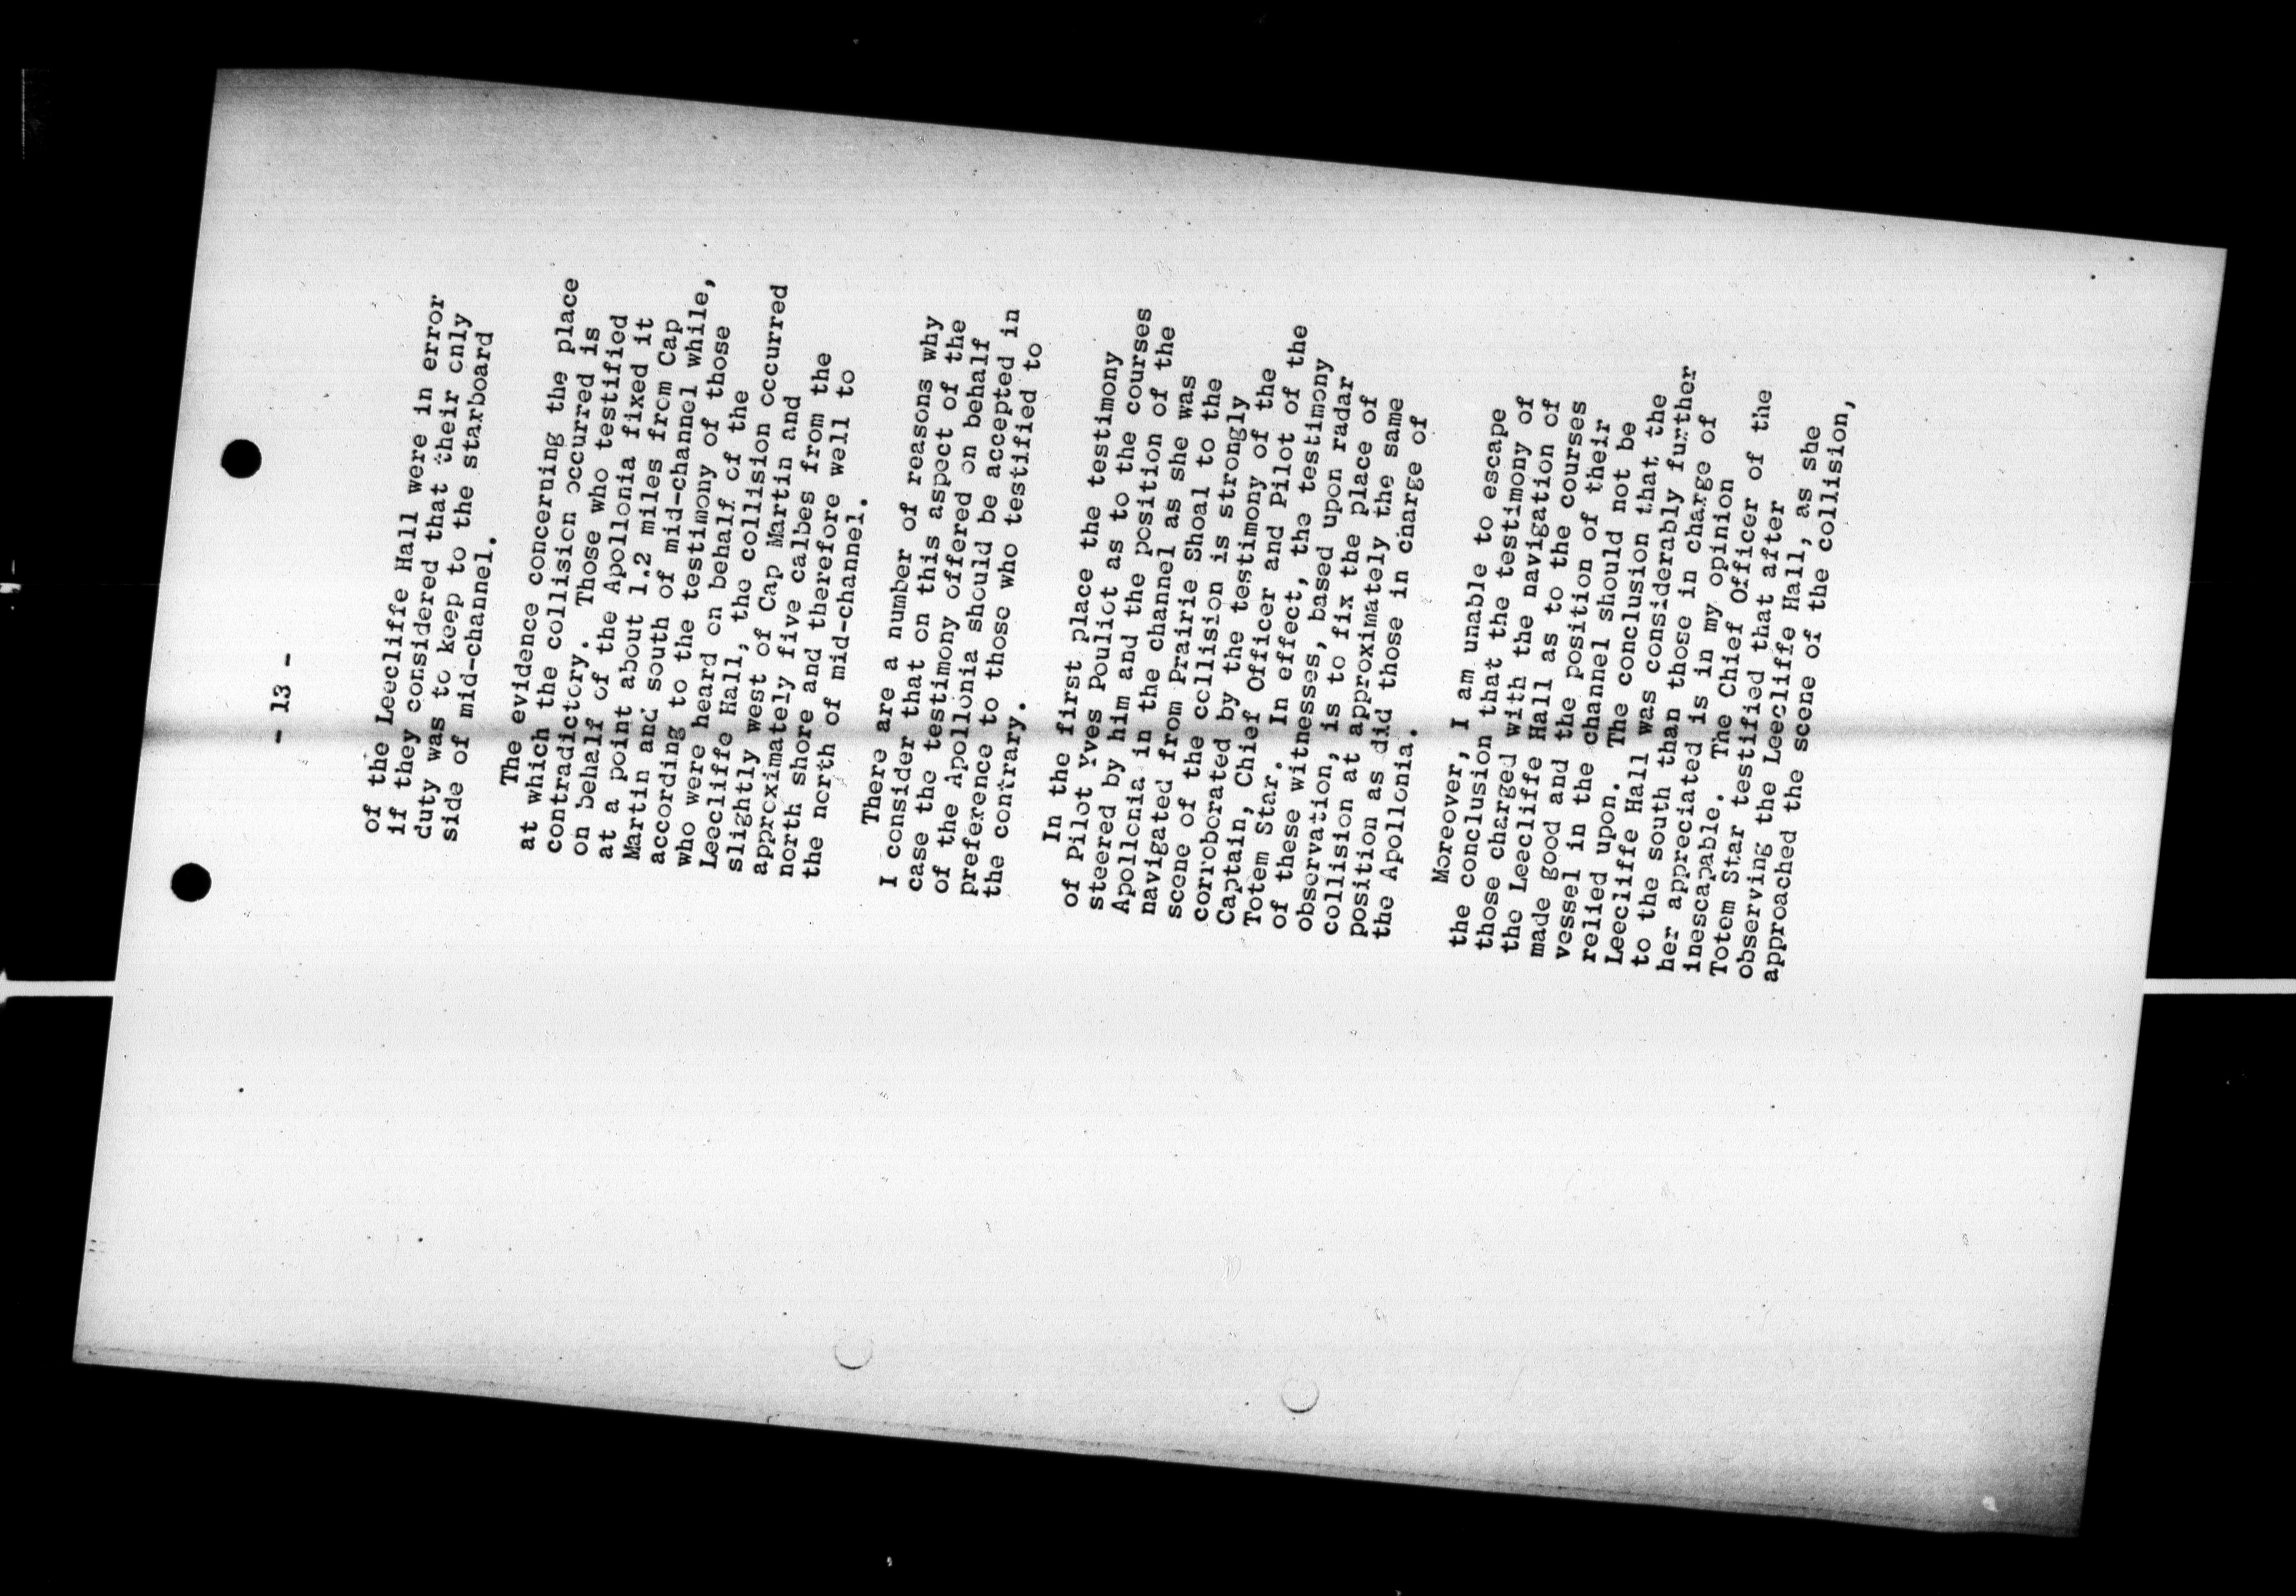 - 13 -
of the Leecliffe Hall were in error
if they considered that their only
duty was to keep to the starboard
side of mid-channel.
The evidence concerning the place
at which the collision occurred is
contradictory. Those who testified
on behalf of the Apollonia fixed it
at a point about 1.2 miles from Cap
Martin and south of mid-channel while,
according to the testimony of those
who were heard on behalf of the
Leecliffe Hall, the collision occurred
slightly west of Cap Martin and
approximately five calbes from the
north shore and therefore well to
the north of mid-channel.
There are a number of reasons why
I consider that on this aspect of the
case the testimony offered on behalf
of the Apollonia should be accepted in
preference to those who testified to
the contrary.
In the first place the testimony
of Pilot Yves Pouliot as to the courses
steered by him and the position of the
Apollonia in the channel as she was
navigated from Prairie Shoal to the
scene of the collision is strongly
corroborated by the testimony of the
Captain, Chief Officer and Pilot of the
Totem Star. In effect, the testimony
of these witnesses, based upon radar
observation, is to fix the place of
collision at approximately the same
position as did those in charge of
the Apollonia.
Moreover, I am unable to escape
the conclusion that the testimony of
those charged with the navigation of
the Leecliffe Hall as to the courses
made good and the position of their
vessel in the channel should not be
relied upon. The conclusion that the
Leecliffe Hall was considerably further
to the south than those in charge of
her appreciated is in my opinion
inescapable. The Chief Officer of the
Totem Star testified that after
observing the Leecliffe Hall, as she
approached the scene of the collision,